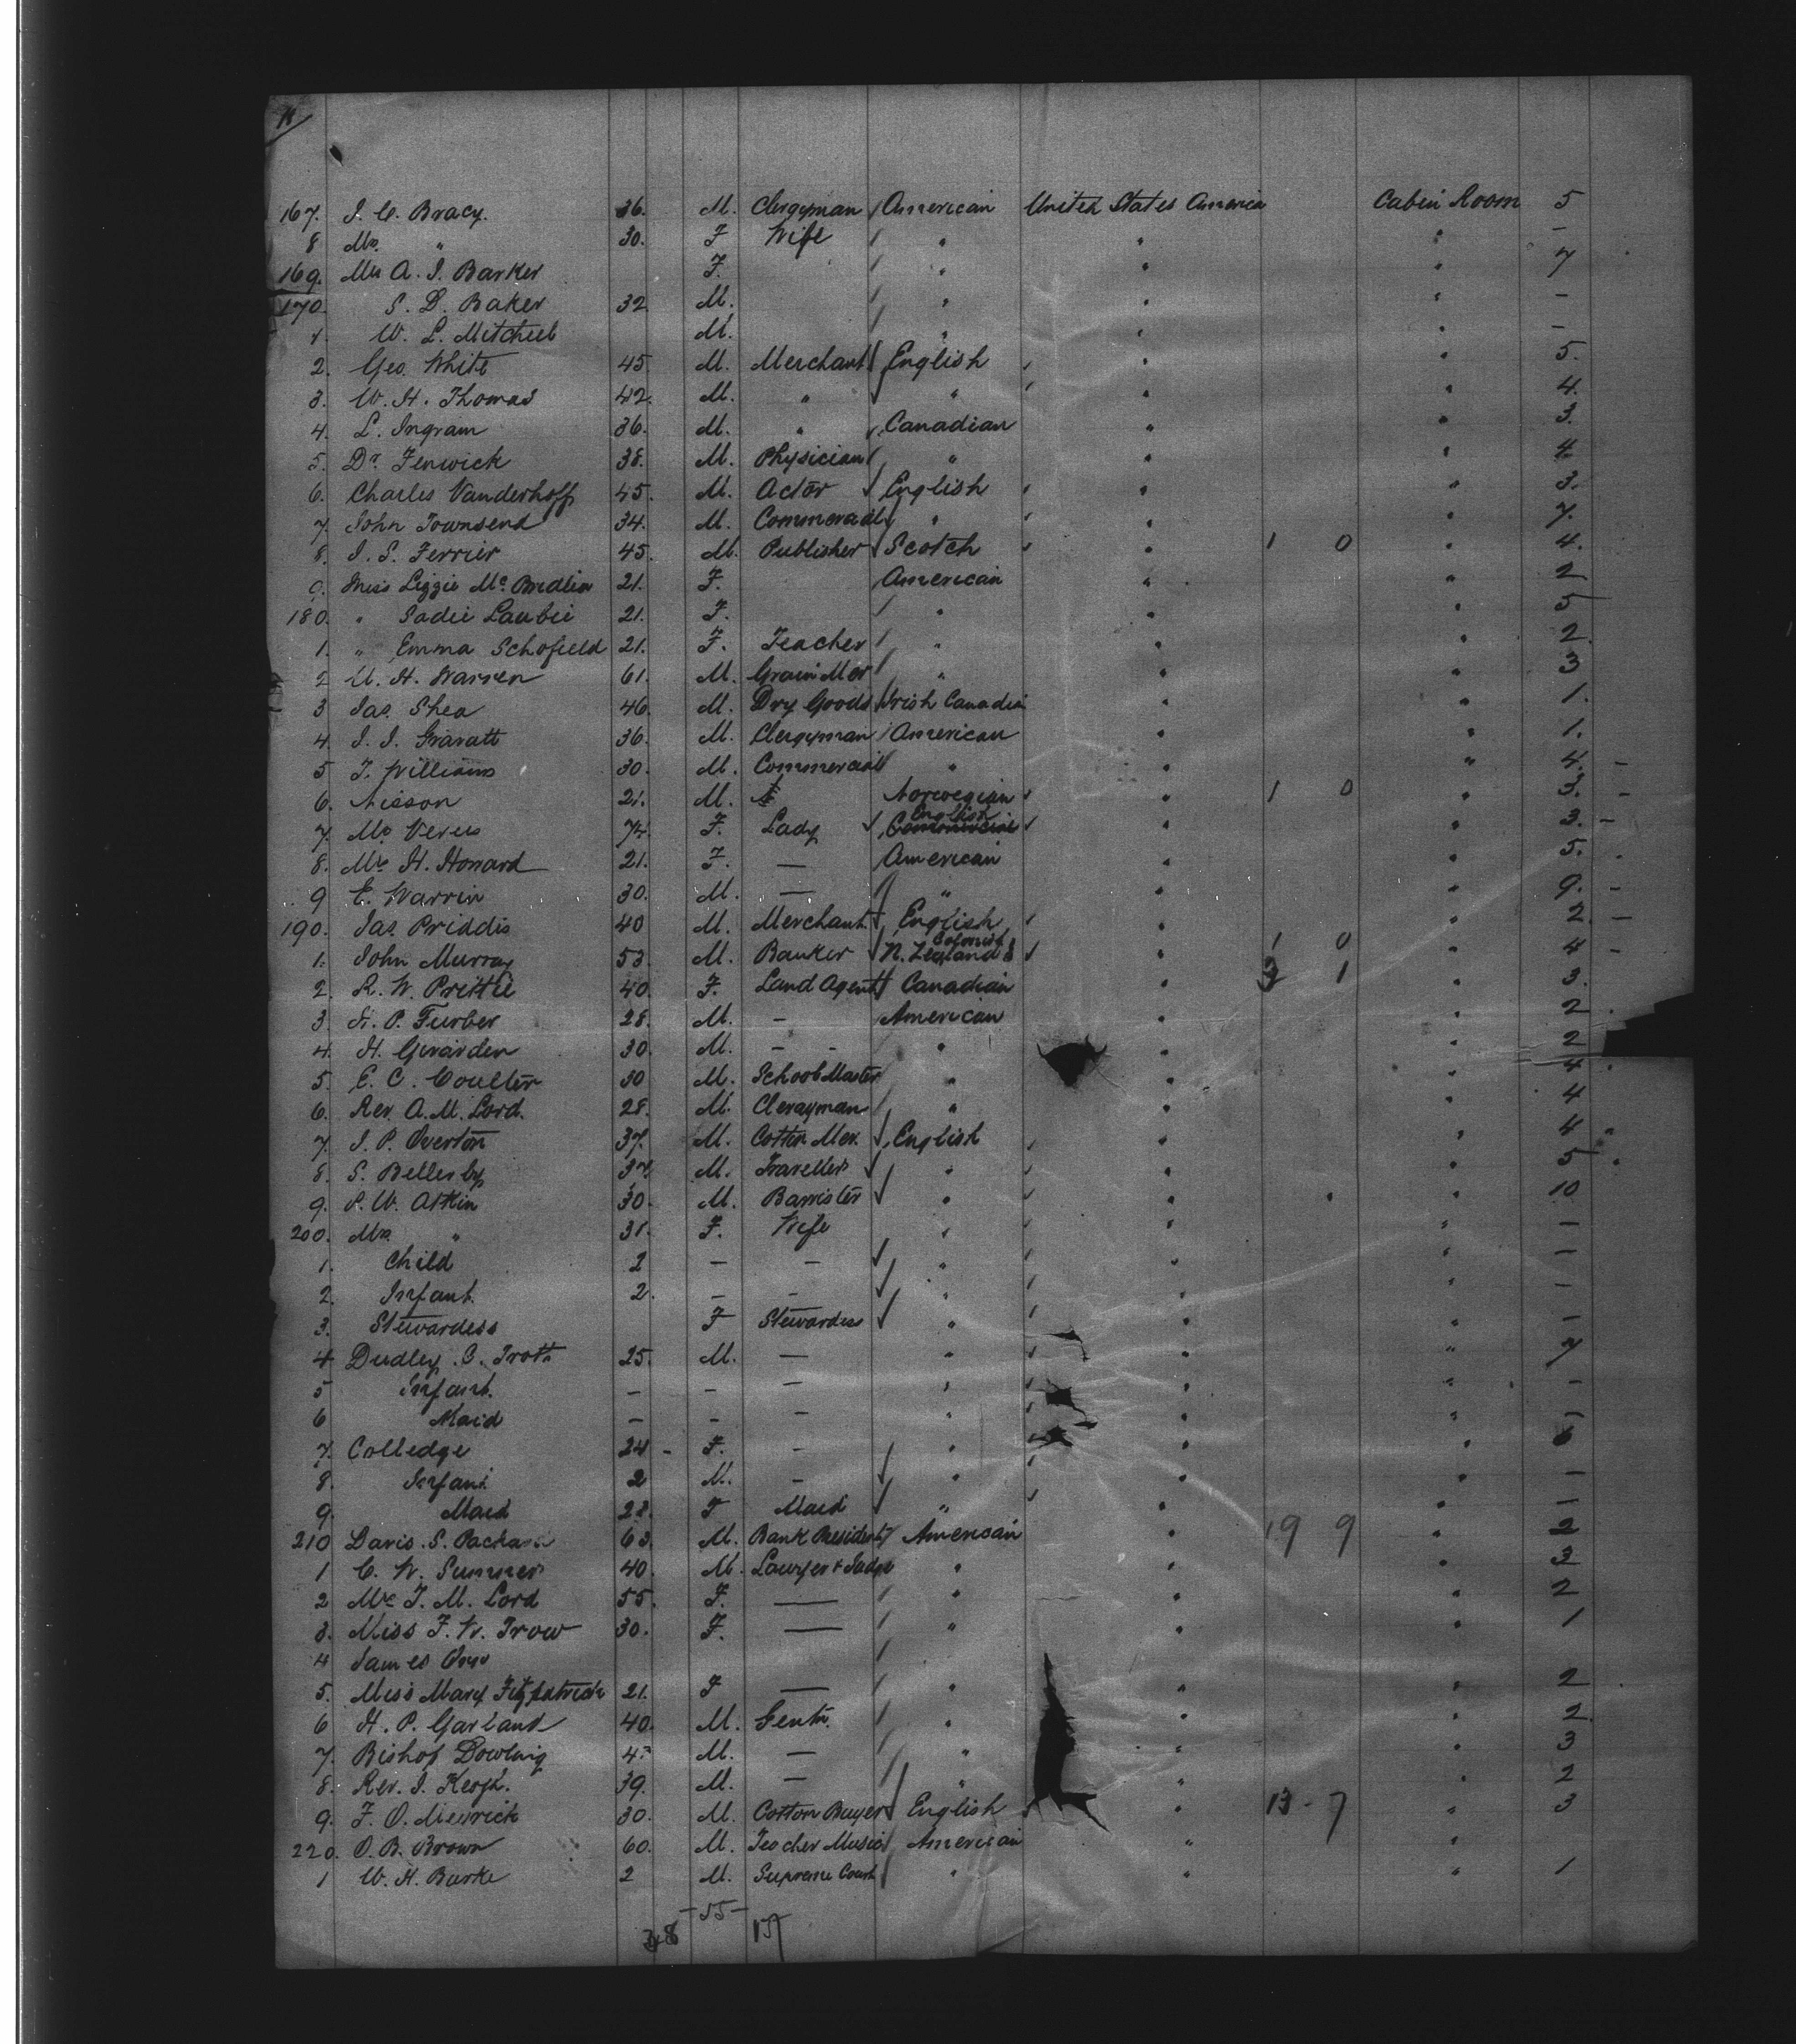 167. J. C. Bracy. 36. M. Clergyman American United States America Cabin Room 5
8 Mrs. " 30. F Wife " " " —
169. Mrs A. J. Barker F. " " " 7
170. S. D. Baker 32 M. " " " —
1. W. L. Mitchell M. " " " —
2. Geo. White 45 M. Merchant English " " 5.
3. W. H. Thomas 42. M. " " " " 4.
4. L. Ingram 36. M. " Canadian " " 3.
5. Dr. Fenwick 38. M. Physician " " " 4.
6. Charles Vanderhoff 45. M. Actor English " " 3.
7. John Townsend 34. M. Commercial " " " 7.
8. J. S. Ferrier 45. M. Publisher Scotch " 1 0 " 4.
9. Miss Lizzie Mc 21. F. American " " 2
180. " Sadie Laubie 21. F. " " " 5
1. " Emma Schofield 21. F. Teacher " " " 2
2 H. Warren 61. M. Grain Mer " " " 3
3 Jas. Shea 46. M. Dry Goods Irish Canadia " " 1.
4. J. J. 36. M. Clergyman American " " 1.
5 T. Williams 30. M. Commercial " " " 4. —
6. Nisson 21. M. Norwegian " 1 0 " 3. —
7. Mrs 74. F. Lady English " " 3. —
8. Mrs H. Howard 21. F. — American " " 5.
9 E. Warrin 30. M. — " " " 9. —
190. Jas. Priddis 40 M. Merchant English " " 2. —
1. John Murray 53. M. Banker N. Zealand Colonist " 1 0 " 4 —
2. R. W. Prittie 40. F. Land Agent Canadian " 3 1 " 3.
3. P. Furber 28. M. — American " " 2
4. H. Girarden 30. M. — — " " " 2
5. E. C. Coulter 30 M. School Master " " " 4
6. Rev. A. M. Lord. 28. M. Clergyman " " " 4
7. J. P. Overton 37. M. Cotton Mer. English " " 4
8. S. Bellerby 37. M. Traveller " " " 5
9. P. W. Atkin 30. M. Barrister " " " 10
200. Mrs. " 31. F. Wife " " " —
1. Child 2 — — " " " —
2. Infant. 2. — — " " " —
3. Stewardess F Stewardess " " " —
4. Dudley. C. Troth 25. M. — " " " 7
5 Infant. — — — " " " —
6 Maid — — — " " " —
7. Colledge 24 - F. — " " " 6
8. Infant 2 M. — " " " —
9. Maid 28. F Maid " " " —
210 Davis. S. Packard 63. M. Bank President American " 19 9 " 2
1 C. W. Sumner 40. M. Lawyer & Judge " " " 3
2 Mrs J. M. Lord 55. F. — " " " 2
3. Miss F. W. Trow 30. F. — " " " 1
4 James Orr
5. Miss Mary Fitzpatrick 21. F — " " " 2
6 H. P. Garland 40. M. Gentn. " " " 2
7. Bishop Dowling 4 M. — " " " 3
8. Rev. J. Keogh. 39. M. — " " " 2
9. F. O. 30. M. Cotton Buyer English " 13 - 7 " 3
220. O. B. Brown 60. M. Teacher Music American " "
1 W. H. Burke 2 M. Supreme Court " " " 1
— 55 —
38 17